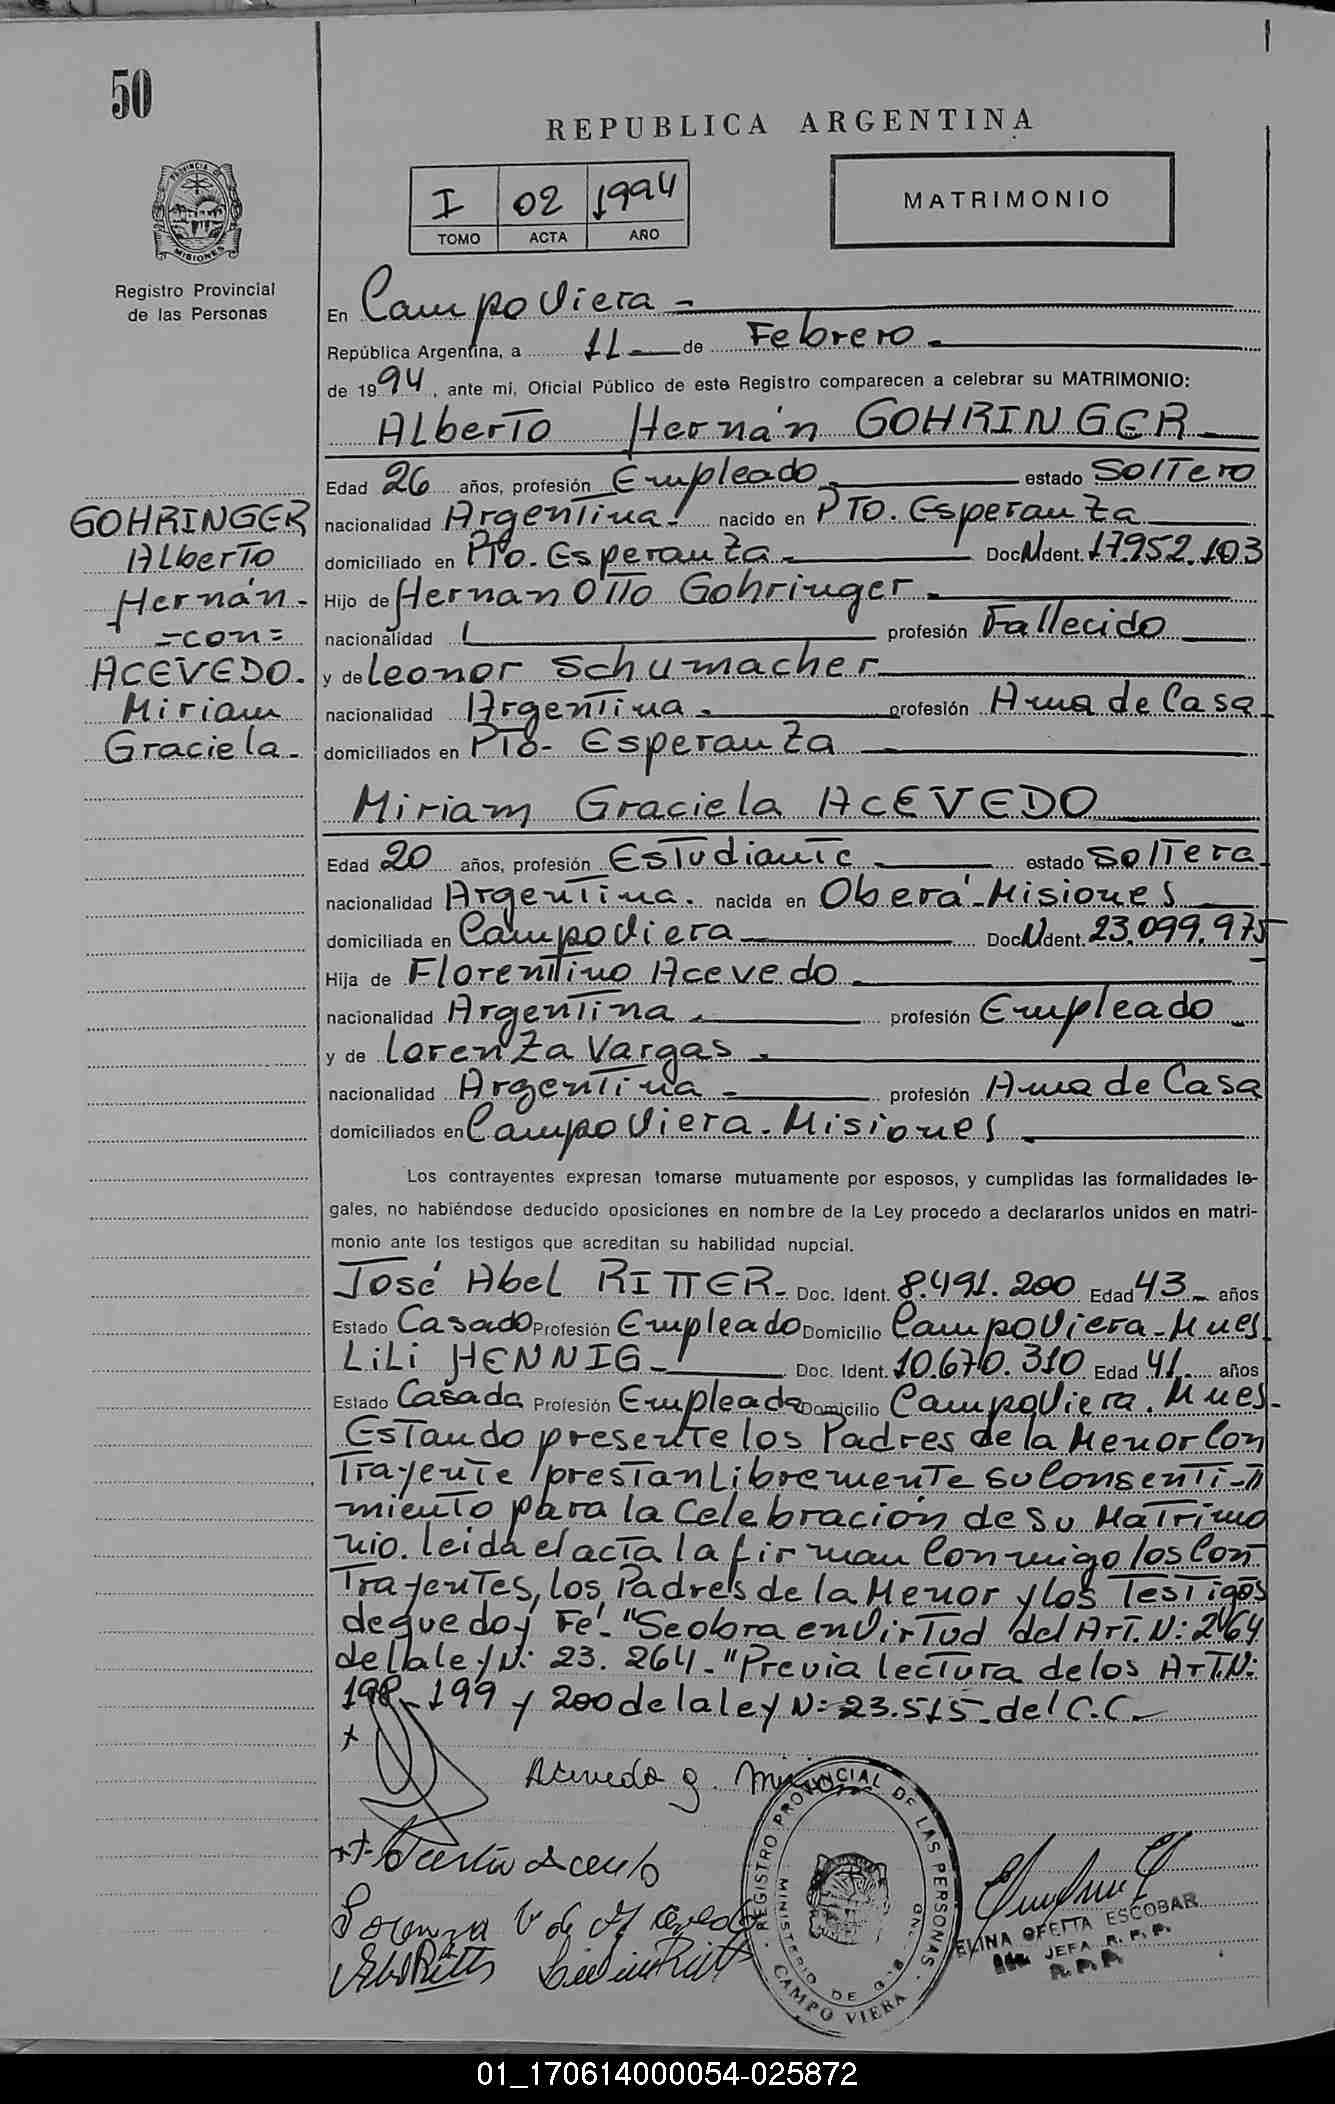 50
REPUBLICA ARGENTINA
I 02 1994
TOMO ACTA AÑO
MATRIMONIO
PROVINCIA DE
MISIONES
Registro Provincial
de las Personas
En Campo Viera -
República Argentina, a 11 - de Febrero -
de 1994, ante mí, Oficial Público de este Registro comparecen a celebrar su MATRIMONIO:
Alberto Hernán GOHRINGER
Edad 26 años, profesión Empleado. estado Soltero
nacionalidad Argentina. nacido en Pto. Esperanza
domiciliado en Pto. Esperanza - Doc.N.Ident. 17.952.103
Hijo de Hernan Otto Gohringer -
nacionalidad profesión Fallecido
y de Leonor Schumacher
nacionalidad Argentina. profesión Ama de Casa
domiciliados en Pto- Esperanza
GOHRINGER
Alberto
Hernán-
=con=
ACEVEDO.
Miriam
Graciela-
Miriam Graciela ACEVEDO
Edad 20 años, profesión Estudiante - estado Soltera
nacionalidad Argentina. nacida en Oberá-Misiones
domiciliada en Campo Viera Doc.N.Ident. 23.099.975
Hija de Florentino Acevedo
nacionalidad Argentina. profesión Empleado -
y de Lorenza Vargas.
nacionalidad Argentina - profesión Ama de Casa
domiciliados en Campo Viera. Misiones
Los contrayentes expresan tomarse mutuamente por esposos, y cumplidas las formalidades le-
gales, no habiéndose deducido oposiciones en nombre de la Ley procedo a declararlos unidos en matri-
monio ante los testigos que acreditan su habilidad nupcial.
José Abel RITTER- Doc. Ident. 8.491.200 Edad 43 - años
Estado Casado Profesión Empleado Domicilio Campo Viera-Mnes
LiLi HENNIG- Doc. Ident. 10.670.310 Edad 41 años
Estado Casada Profesión Empleada Domicilio Campo Viera. Mnes-
Estando presente los Padres de la Menor Con
Trayente prestan Libremente su Consenti-
miento para la Celebración de su Matrimo
nio. leida el acta la firman Conmigo los Con
Trayentes, los Padres de la Menor y los Testigos
de que doy Fé. "Se obra en Virtud del Art. N: 264
de la ley N: 23. 264-"Previa lectura de los Art.N:
198-199 y 200 de la ley N: 23.515- del C.C.
Acevedo g. Miriam
Lorenza V de Acevedo
REGISTRO PROVINCIAL DE LAS PERSONAS
MINISTERIO DE GOB.
CAMPO VIERA
ELINA OFELIA ESCOBAR
JEFA R. P. P.
R.P.P.
01_170614000054-025872